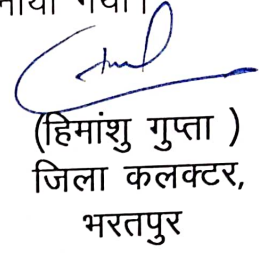 गया।
(हिमांशु गुप्ता )
जिला कलक्टर,
भरतपुर